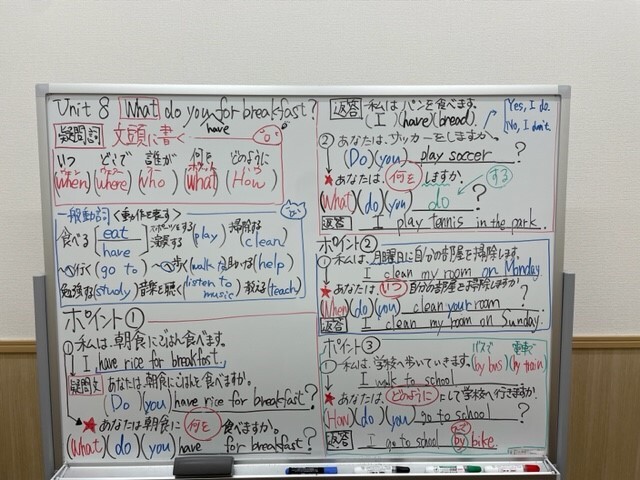 Unit 8 What do you have for breakfast?
疑問詞 文頭に書く
いつ どこで 誰が 何を どのように
(When)(where)(Who)(What)(How)
一般動詞 <動作を表す>
食べる eat have
スポーツをする 演奏する (play) 掃除する (clean)
〜へ行く(go to) 〜へ歩く(walk to) 助ける(help)
勉強する(study) 音楽を聴く(listen to music) 教える(teach)
ポイント①
① 私は、朝食にごはん食べます。
I have rice for breakfast.
疑問文 あなたは、朝食にごはんを食べますか。
(Do)(you) have rice for breakfast?
★ あなたは朝食に 何を 食べますか。
(What)(do)(you) have for breakfast?
返答 私はパンを食べます。
(I)(have)(bread).
Yes, I do.
No, I don't.
② あなたは、サッカーをしますか。
(Do)(you) play soccer?
★ あなたは、何をしますか。 する
(What)(do)(you) do?
返答 I play tennis in the park.
ポイント②
① 私は、月曜日に自分の部屋を掃除します。
I clean my room on Monday.
★ あなたは、いつ 自分の部屋を掃除しますか
(When)(do)(you) clean your room?
返答 I clean my room on Sunday.
ポイント③
バスで 電車で
(by bus)(by train)
① 私は、学校へ歩いていきます。
I walk to school
★ あなたは、どのようにして学校へ行きますか。
(How)(do)(you) go to school?
返答 I go to school (by) bike.